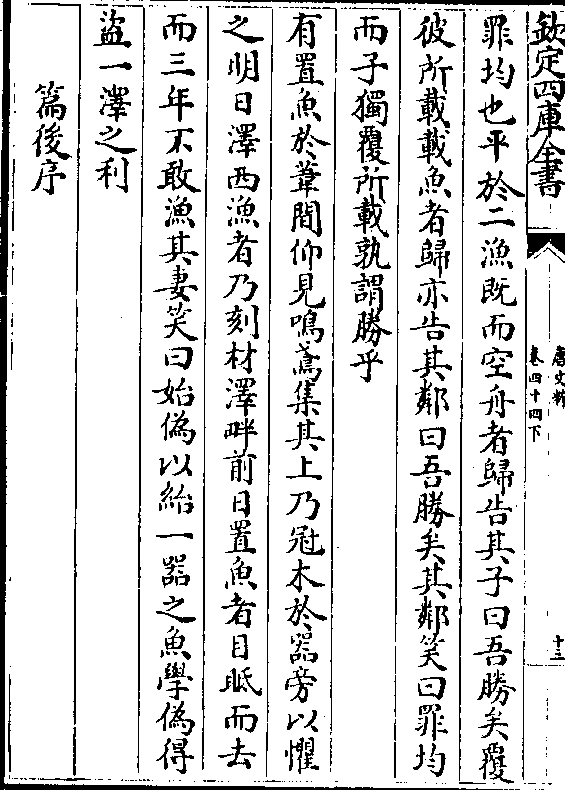 欽定四庫全書
唐文粹
卷四十四下
十三
罪均也平於二漁既而空舟者歸告其子曰吾勝矣覆
彼所載載魚者歸亦告其鄰曰吾勝矣其鄰笑曰罪均
而子獨覆所載孰謂勝乎
有置魚於葦間仰見鳴鳶集其上乃冠木於器旁以懼
之明日澤西漁者乃刻材澤畔前日置魚者目眂而去
而三年不敢漁其妻笑曰始偽以紿一器之魚學偽得
盜一澤之利
篇後序